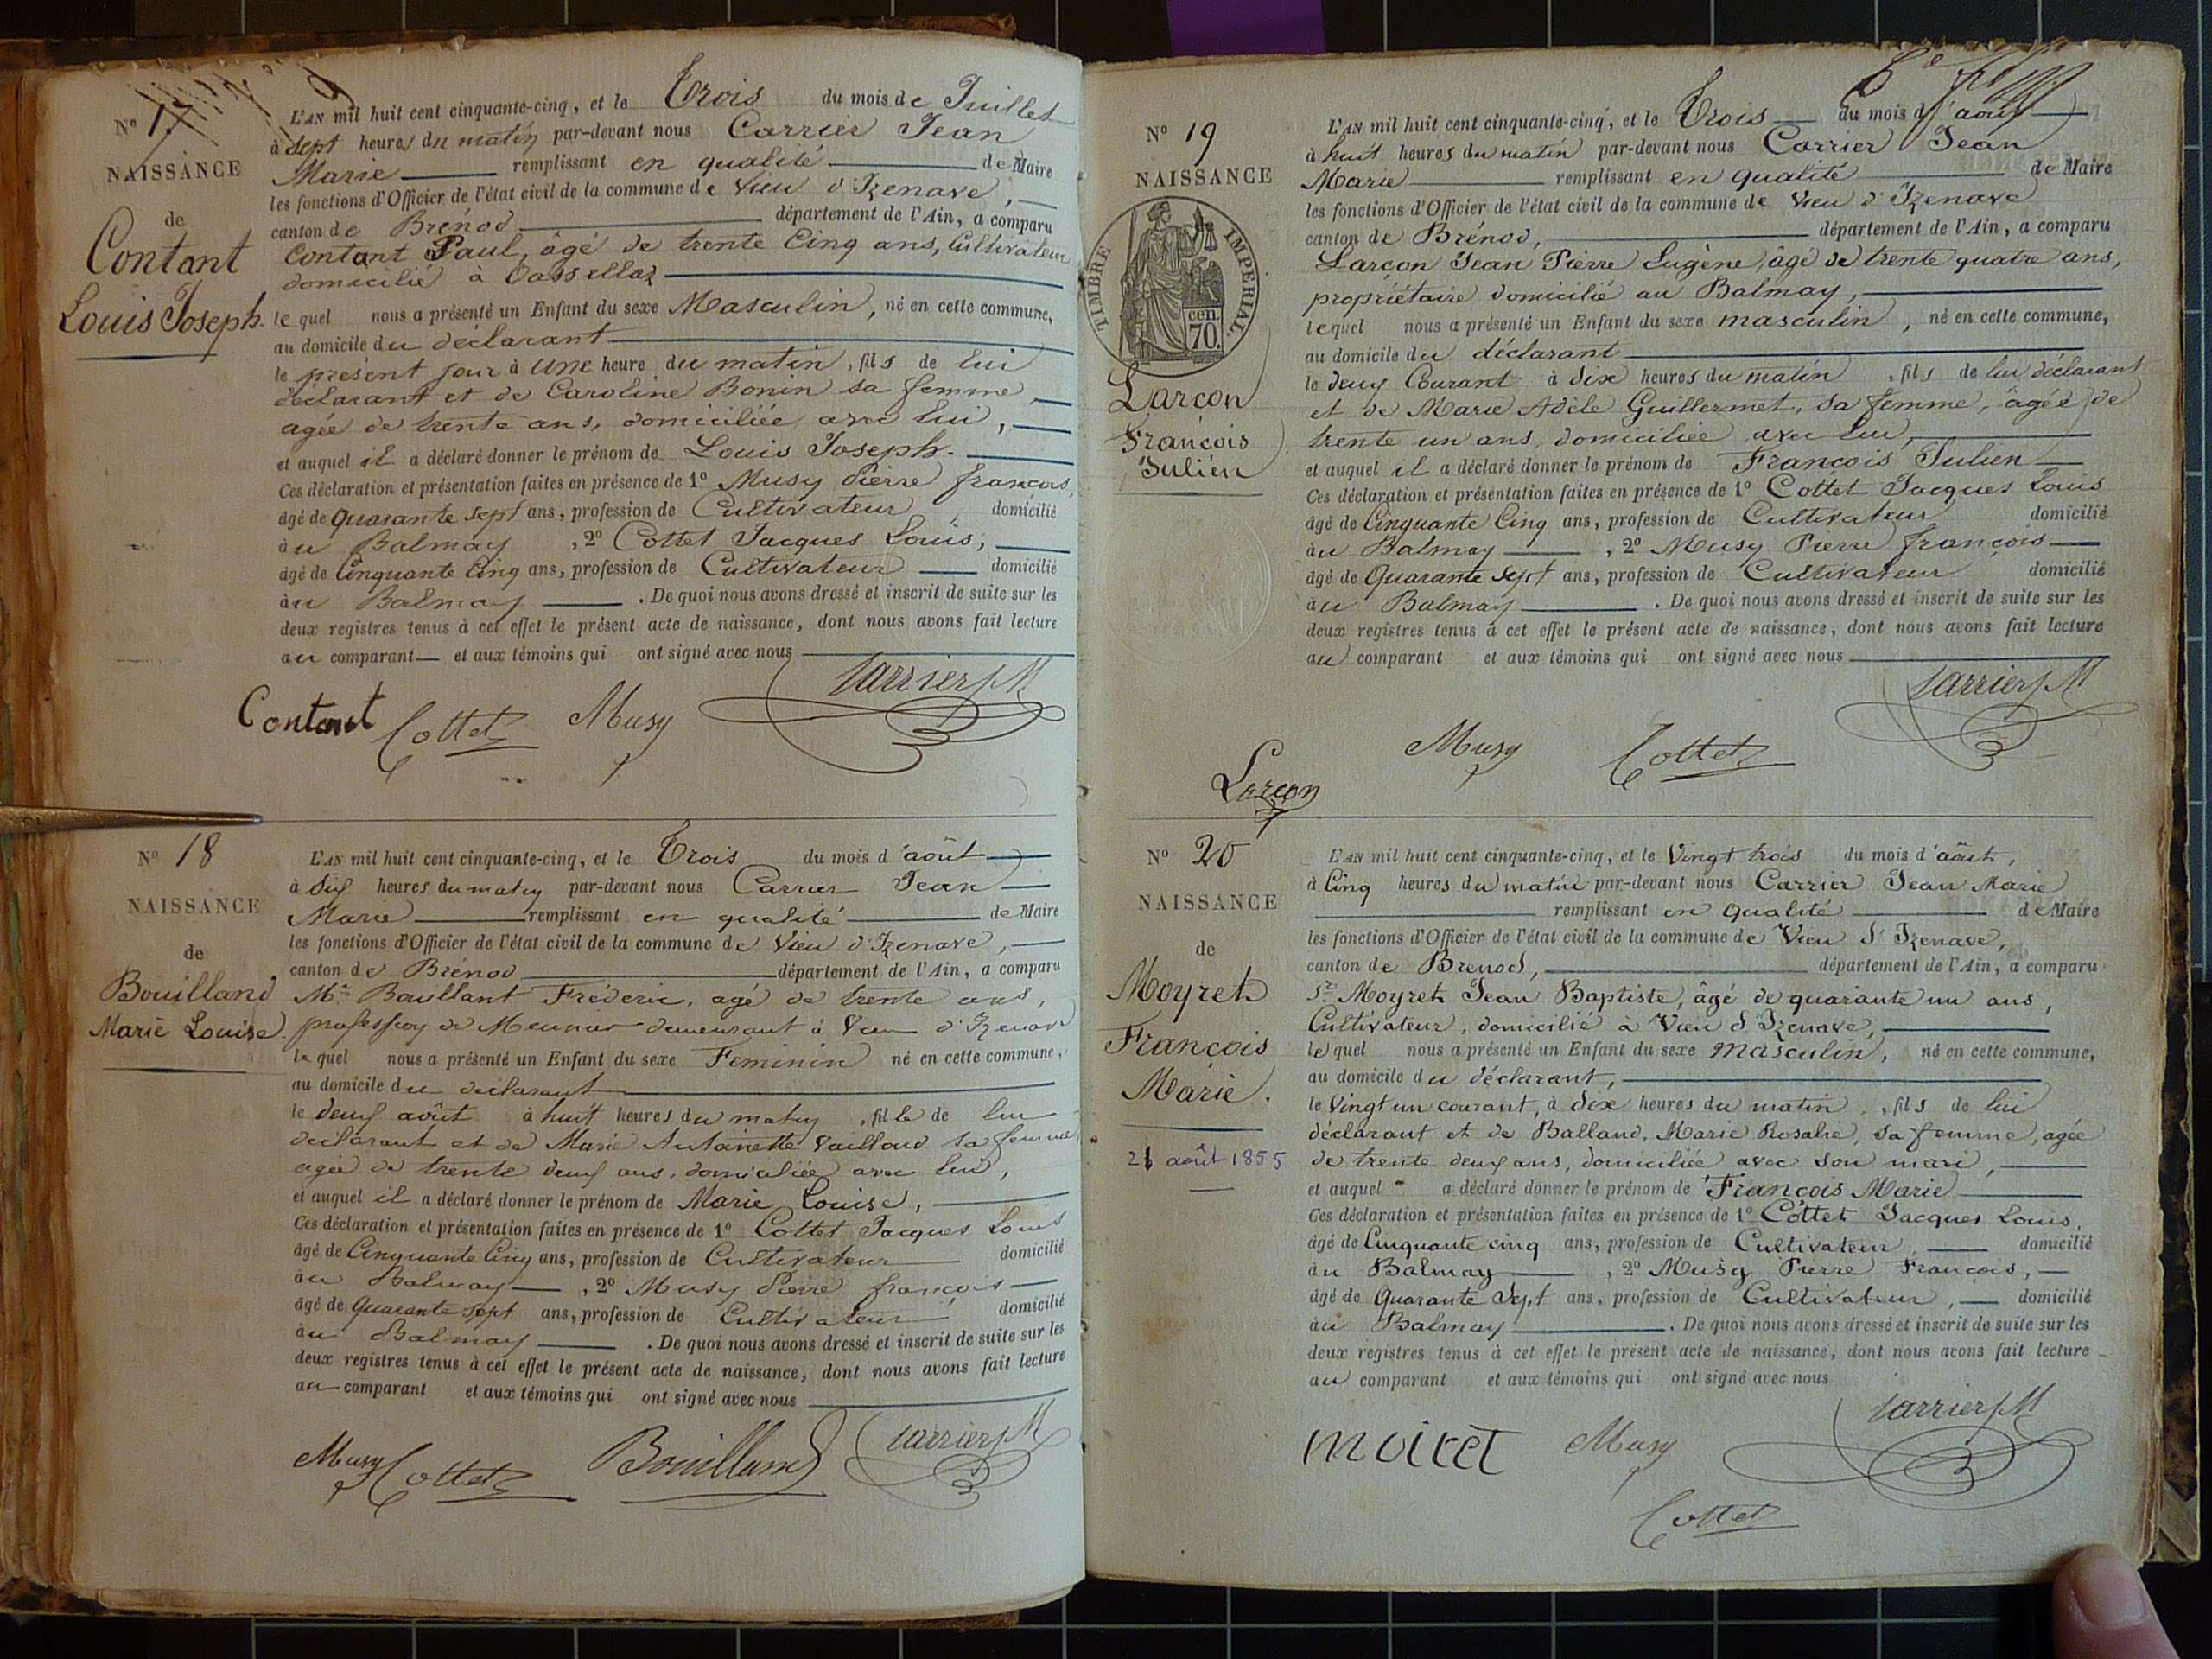 N° 17
NAISSANCE
de
Contant
Louis Joseph.
L'AN mil huit cent cinquante-cinq, et le Trois du mois de Juillet
à sept heures du matin par-devant nous Carrier Jean
Marie remplissant en qualité de Maire
les fonctions d'Officier de l'état civil de la commune de Vieu d'Izenave,
canton de Brénod département de l'Ain, a comparu
Contant Paul, âgé de trente Cinq ans, Cultivateur
domicilié à
lequel nous a présenté un Enfant du sexe Masculin, né en cette commune,
au domicile du déclarant
le présent jour à une heure du matin, fils de lui
déclarant et de Caroline Bonin sa femme,
agée de trente ans, domiciliée avec lui,
et auquel il a déclaré donner le prénom de Louis Joseph.
Ces déclaration et présentation faites en présence de 1° Musy Pierre françois,
âgé de Quarante sept ans, profession de Cultivateur, domicilié
au Balmay, 2° Cottet Jacques Louis,
âgé de Cinquante Cinq ans, profession de Cultivateur domicilié
au Balmay. De quoi nous avons dressé et inscrit de suite sur les
deux registres tenus à cet effet le présent acte de naissance, dont nous avons fait lecture
au comparant et aux témoins qui ont signé avec nous
Contant Cottet Musy Carrier J M
N° 18
NAISSANCE
de
Bouilland
Marie Louise.
L'AN mil huit cent cinquante-cinq, et le Trois du mois d'août
à six heures du matin par-devant nous Carrier Jean
Marie remplissant en qualité de Maire
les fonctions d'Officier de l'état civil de la commune de Vieu d'Izenave,
canton de Brénod département de l'Ain, a comparu
Mr Boullant Fréderic, agé de trente ans,
profession de Meunier demeurant à Vieu d'Izenave
lequel nous a présenté un Enfant du sexe Feminin né en cette commune,
au domicile du déclarant
le deux août à huit heures du matin, fille de lui
declarant et de Marie Antoinette Vailloud sa femme
agée de trente deux ans, domiciliée avec lui,
et auquel il a déclaré donner le prénom de Marie Louise,
Ces déclaration et présentation faites en présence de 1° Cottet Jacques Louis
âgé de Cinquante Cinq ans, profession de Cultivateur domicilié
au Balmay, 2° Musy Pierre françois
âgé de Quarante sept ans, profession de Cultivateur domicilié
au Balmay. De quoi nous avons dressé et inscrit de suite sur les
deux registres tenus à cet effet le présent acte de naissance, dont nous avons fait lecture
au comparant et aux témoins qui ont signé avec nous
Musy Cottet Bouilland Carrier J M
N° 19
NAISSANCE
TIMBRE IMPERIAL.
70 cen.
Larçon
François
Julien
L'AN mil huit cent cinquante-cinq, et le Trois du mois d'août
à huit heures du matin par-devant nous Carrier Jean
Marie remplissant en qualité de Maire
les fonctions d'Officier de l'état civil de la commune de Vieu d'Izenave
canton de Brénod, département de l'Ain, a comparu
Larçon Jean Pierre Eugène, âgé de trente quatre ans,
propriétaire domicilié au Balmay,
lequel nous a présenté un Enfant du sexe masculin, né en cette commune,
au domicile du déclarant
le deux Courant à dix heures du matin, fils de lui déclarant
et de Marie Adèle Guillermet, sa femme, âgée de
trente un ans, domiciliée avec lui,
et auquel il a déclaré donner le prénom de François Julien
Ces déclaration et présentation faites en présence de 1° Cottet Jacques Louis
âgé de Cinquante Cinq ans, profession de Cultivateur domicilié
au Balmay, 2° Musy Pierre françois
âgé de Quarante sept ans, profession de Cultivateur domicilié
au Balmay. De quoi nous avons dressé et inscrit de suite sur les
deux registres tenus à cet effet le présent acte de naissance, dont nous avons fait lecture
au comparant et aux témoins qui ont signé avec nous
Carrier J M
Musy Cottet
Larçon
N° 20
NAISSANCE
de
Moyret
François
Marie.
21 août 1855
L'AN mil huit cent cinquante-cinq, et le Vingt trois du mois d'août,
à Cinq heures du matin par-devant nous Carrier Jean Marie
remplissant en qualité de Maire
les fonctions d'Officier de l'état civil de la commune de Vieu d'Izenave,
canton de Brenod, département de l'Ain, a comparu
Sr Moyret Jean Baptiste, âgé de quarante un ans,
Cultivateur, domicilié à Vieu d'Izenave,
lequel nous a présenté un Enfant du sexe masculin, né en cette commune,
au domicile du déclarant,
le Vingt un courant, à dix heures du matin, fils de lui
déclarant et de Balland, Marie Rosalie, sa femme, agée
de trente deux ans, domiciliée avec son mari,
et auquel a déclaré donner le prénom de François Marie
Ces déclaration et présentation faites en présence de 1° Cottet Jacques Louis,
âgé de Cinquante cinq ans, profession de Cultivateur, domicilié
au Balmay, 2° Musy Pierre François,
âgé de Quarante Sept ans, profession de Cultivateur, domicilié
au Balmay. De quoi nous avons dressé et inscrit de suite sur les
deux registres tenus à cet effet le présent acte de naissance, dont nous avons fait lecture
au comparant et aux témoins qui ont signé avec nous
Carrier J M
moirèt Musy
Cottet